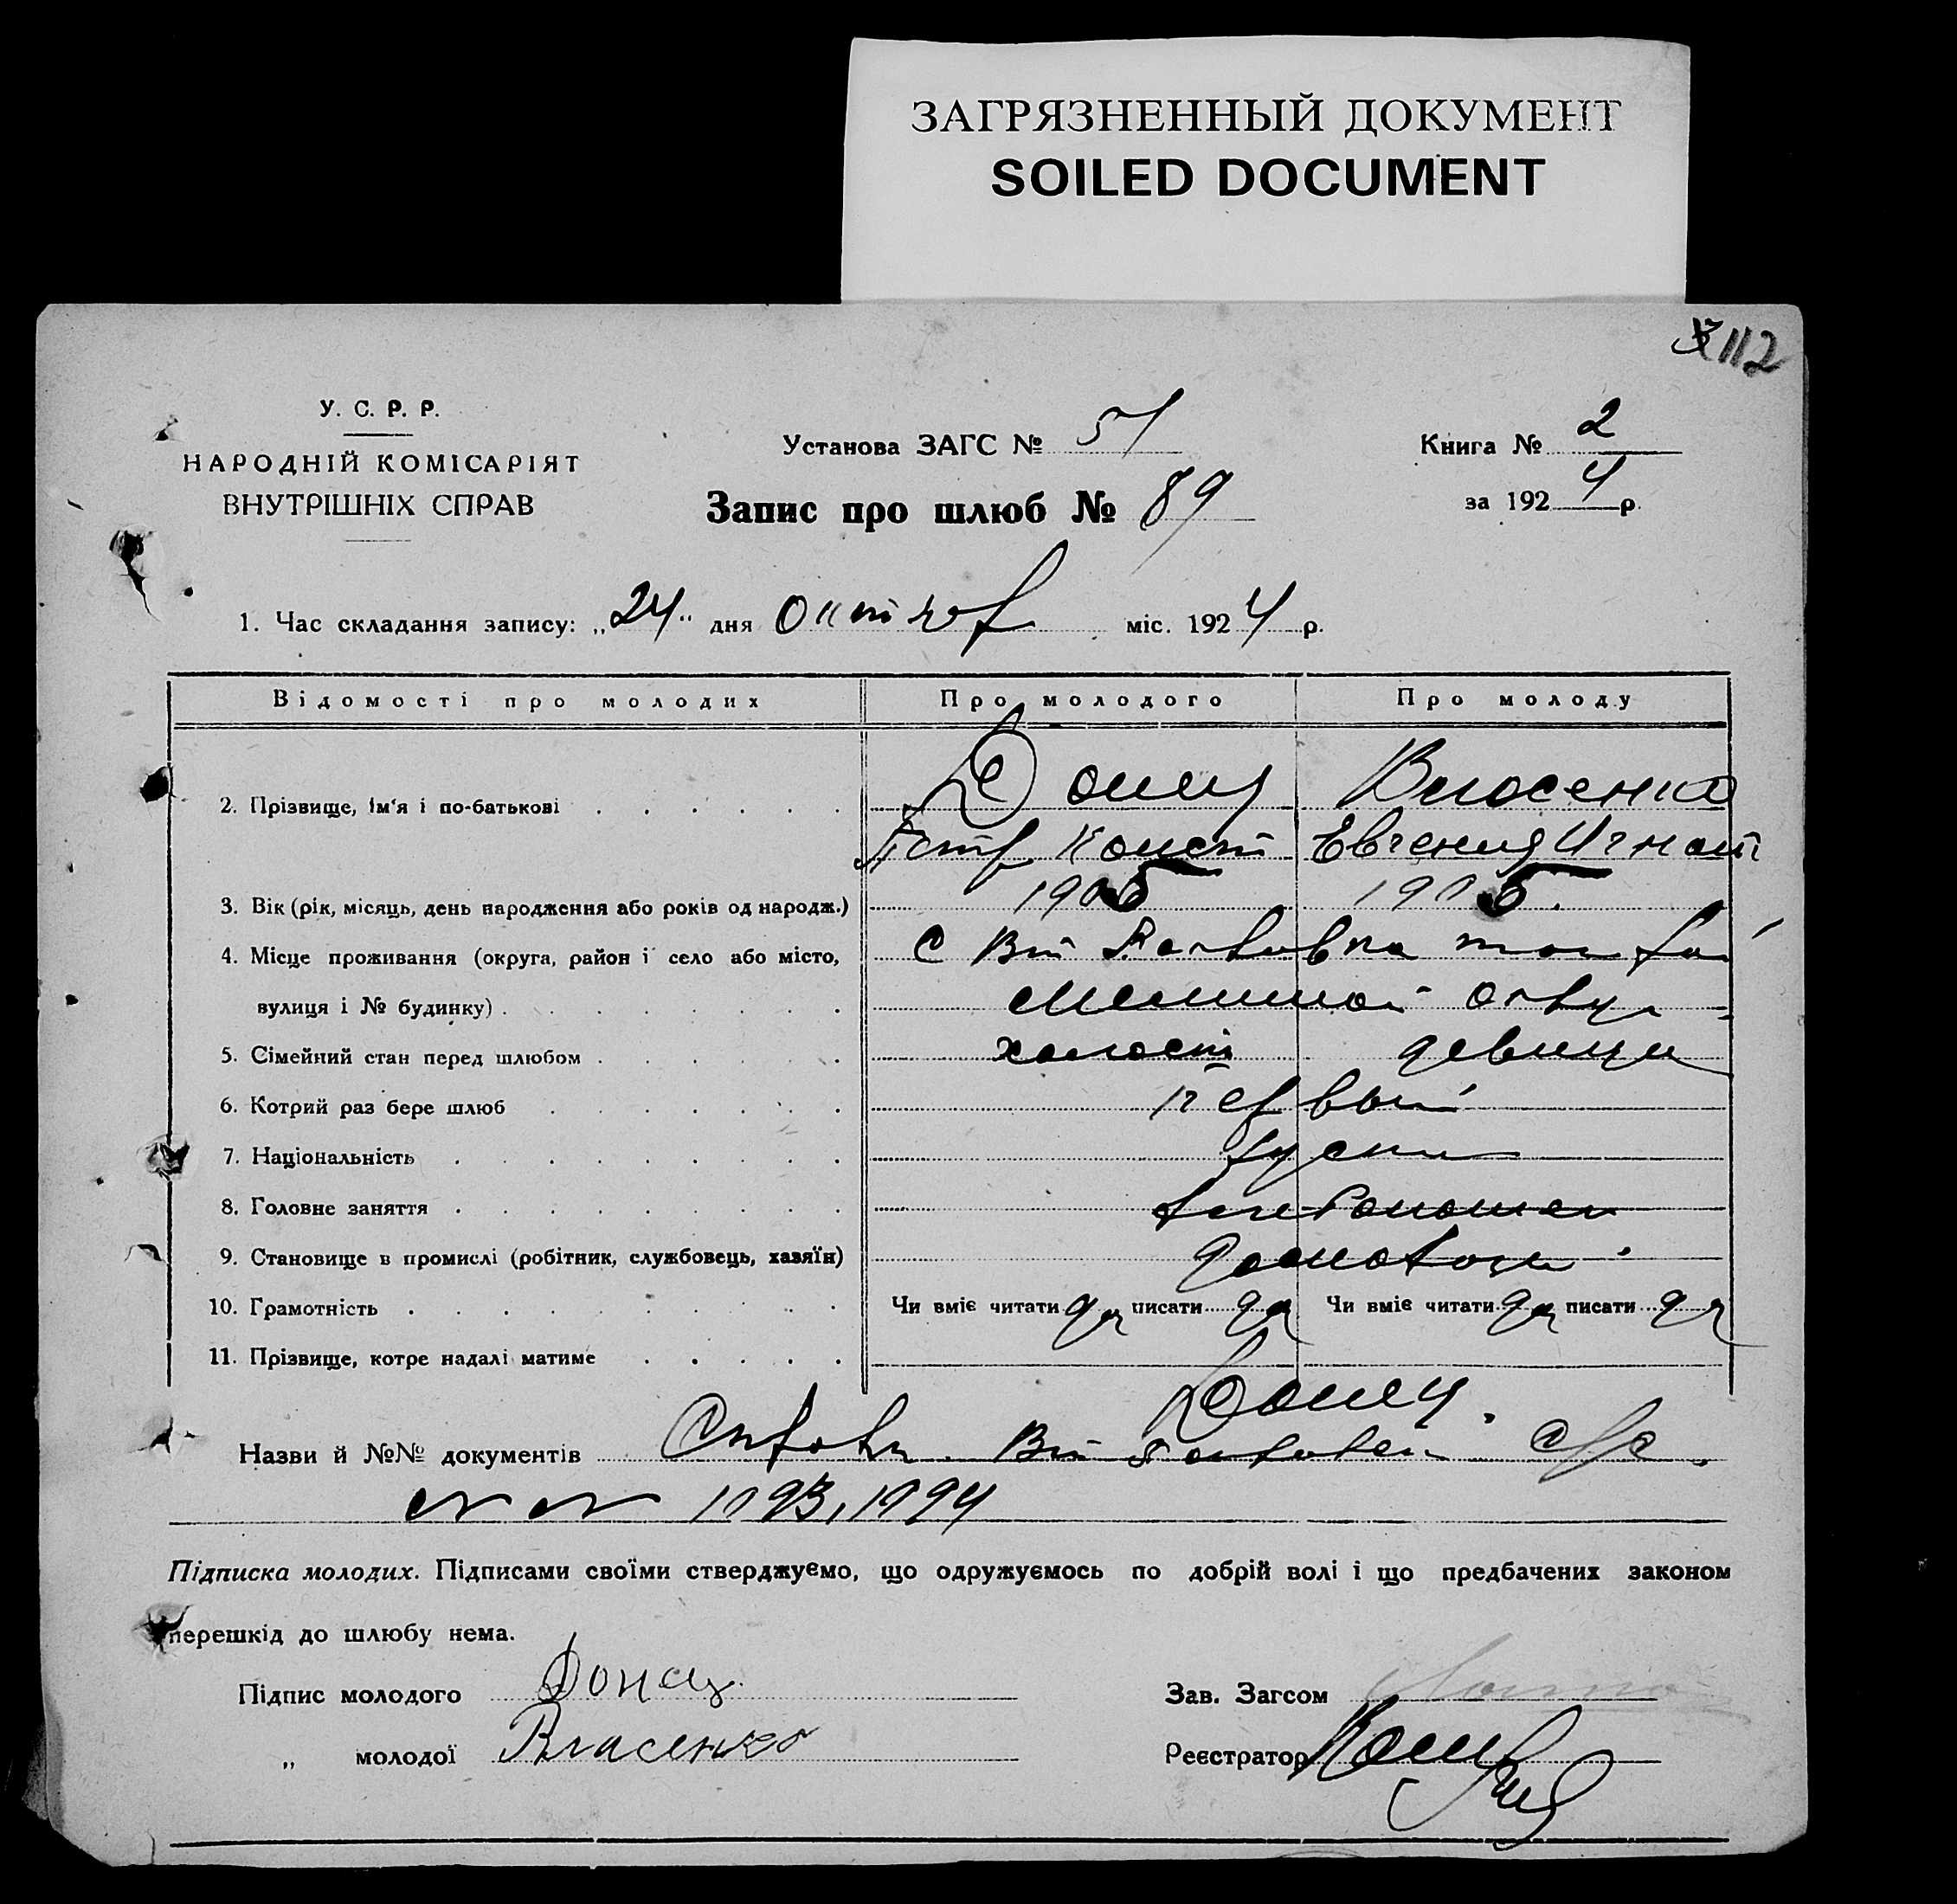 ЗАГРЯЗНЕННЫЙ ДОКУМЕНТ
SOILED DOCUMENT
112
У. С. Р. Р.
НАРОДНІЙ КОМІСАРІЯТ
ВНУТРІШНІХ СПРАВ
Установа ЗАГС № 51
Книга № 2
за 1924 р.
Запис про шлюб № 89
1. Час складання запису: „24" дня міс. 1924 р.
Відомості про молодих Про молодого Про молоду
2. Прізвище, ім'я і по-батькові Донец Власенко
Петр Конст Евгения Игнат
3. Вік (рік, місяць, день народження або років од народж.) 1905 1905.
4. Місце проживання (округа, район і село або місто,
вулиця і № будинку)
5. Сімейний стан перед шлюбом холост девица
6. Котрий раз бере шлюб первый
7. Національність русск
8. Головне заняття
9. Становище в промислі (робітник, службовець, хазяїн)
10. Грамотність Чи вміє читати да писати да Чи вміє читати да писати да
11. Прізвище, котре надалі матиме
Донец.
Назви й №№ документів
1093, 1094
Підписка молодих. Підписами своїми стверджуємо, що одружуємось по добрій волі і що предбачених законом
перешкід до шлюбу нема.
Підпис молодого Донец
Зав. Загсом
„ молодої Власенко
Реєстратор